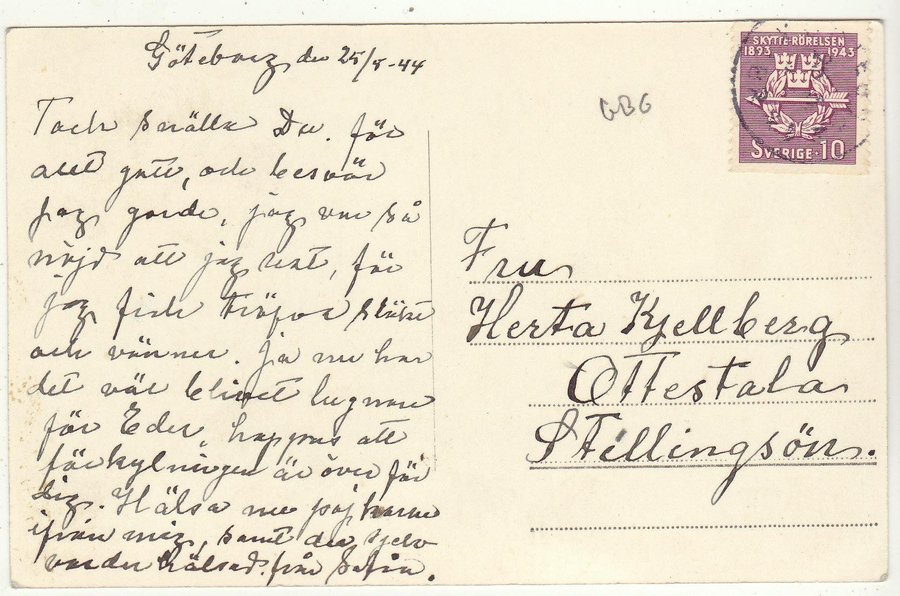 Göteborg den 25/5-44
Tack snälla Du. för
allt gott, och besvär
jag gorde, jag var så
nöjd att jag rest, för
jag fick träffa släkt
och vänner. Ja nu har
det väl blivet lugnare
för Eder, hoppas att
förkylningen är över för
dig. Hälsa nu pojkarna
ifrån mig, samt du sjelv
varder hälsad från Sofia.
GBG
SKYTTE-RÖRELSEN
1893 1943
SVERIGE·10
Fru
Herta Kjellberg
Ottestala
Stellingsön.